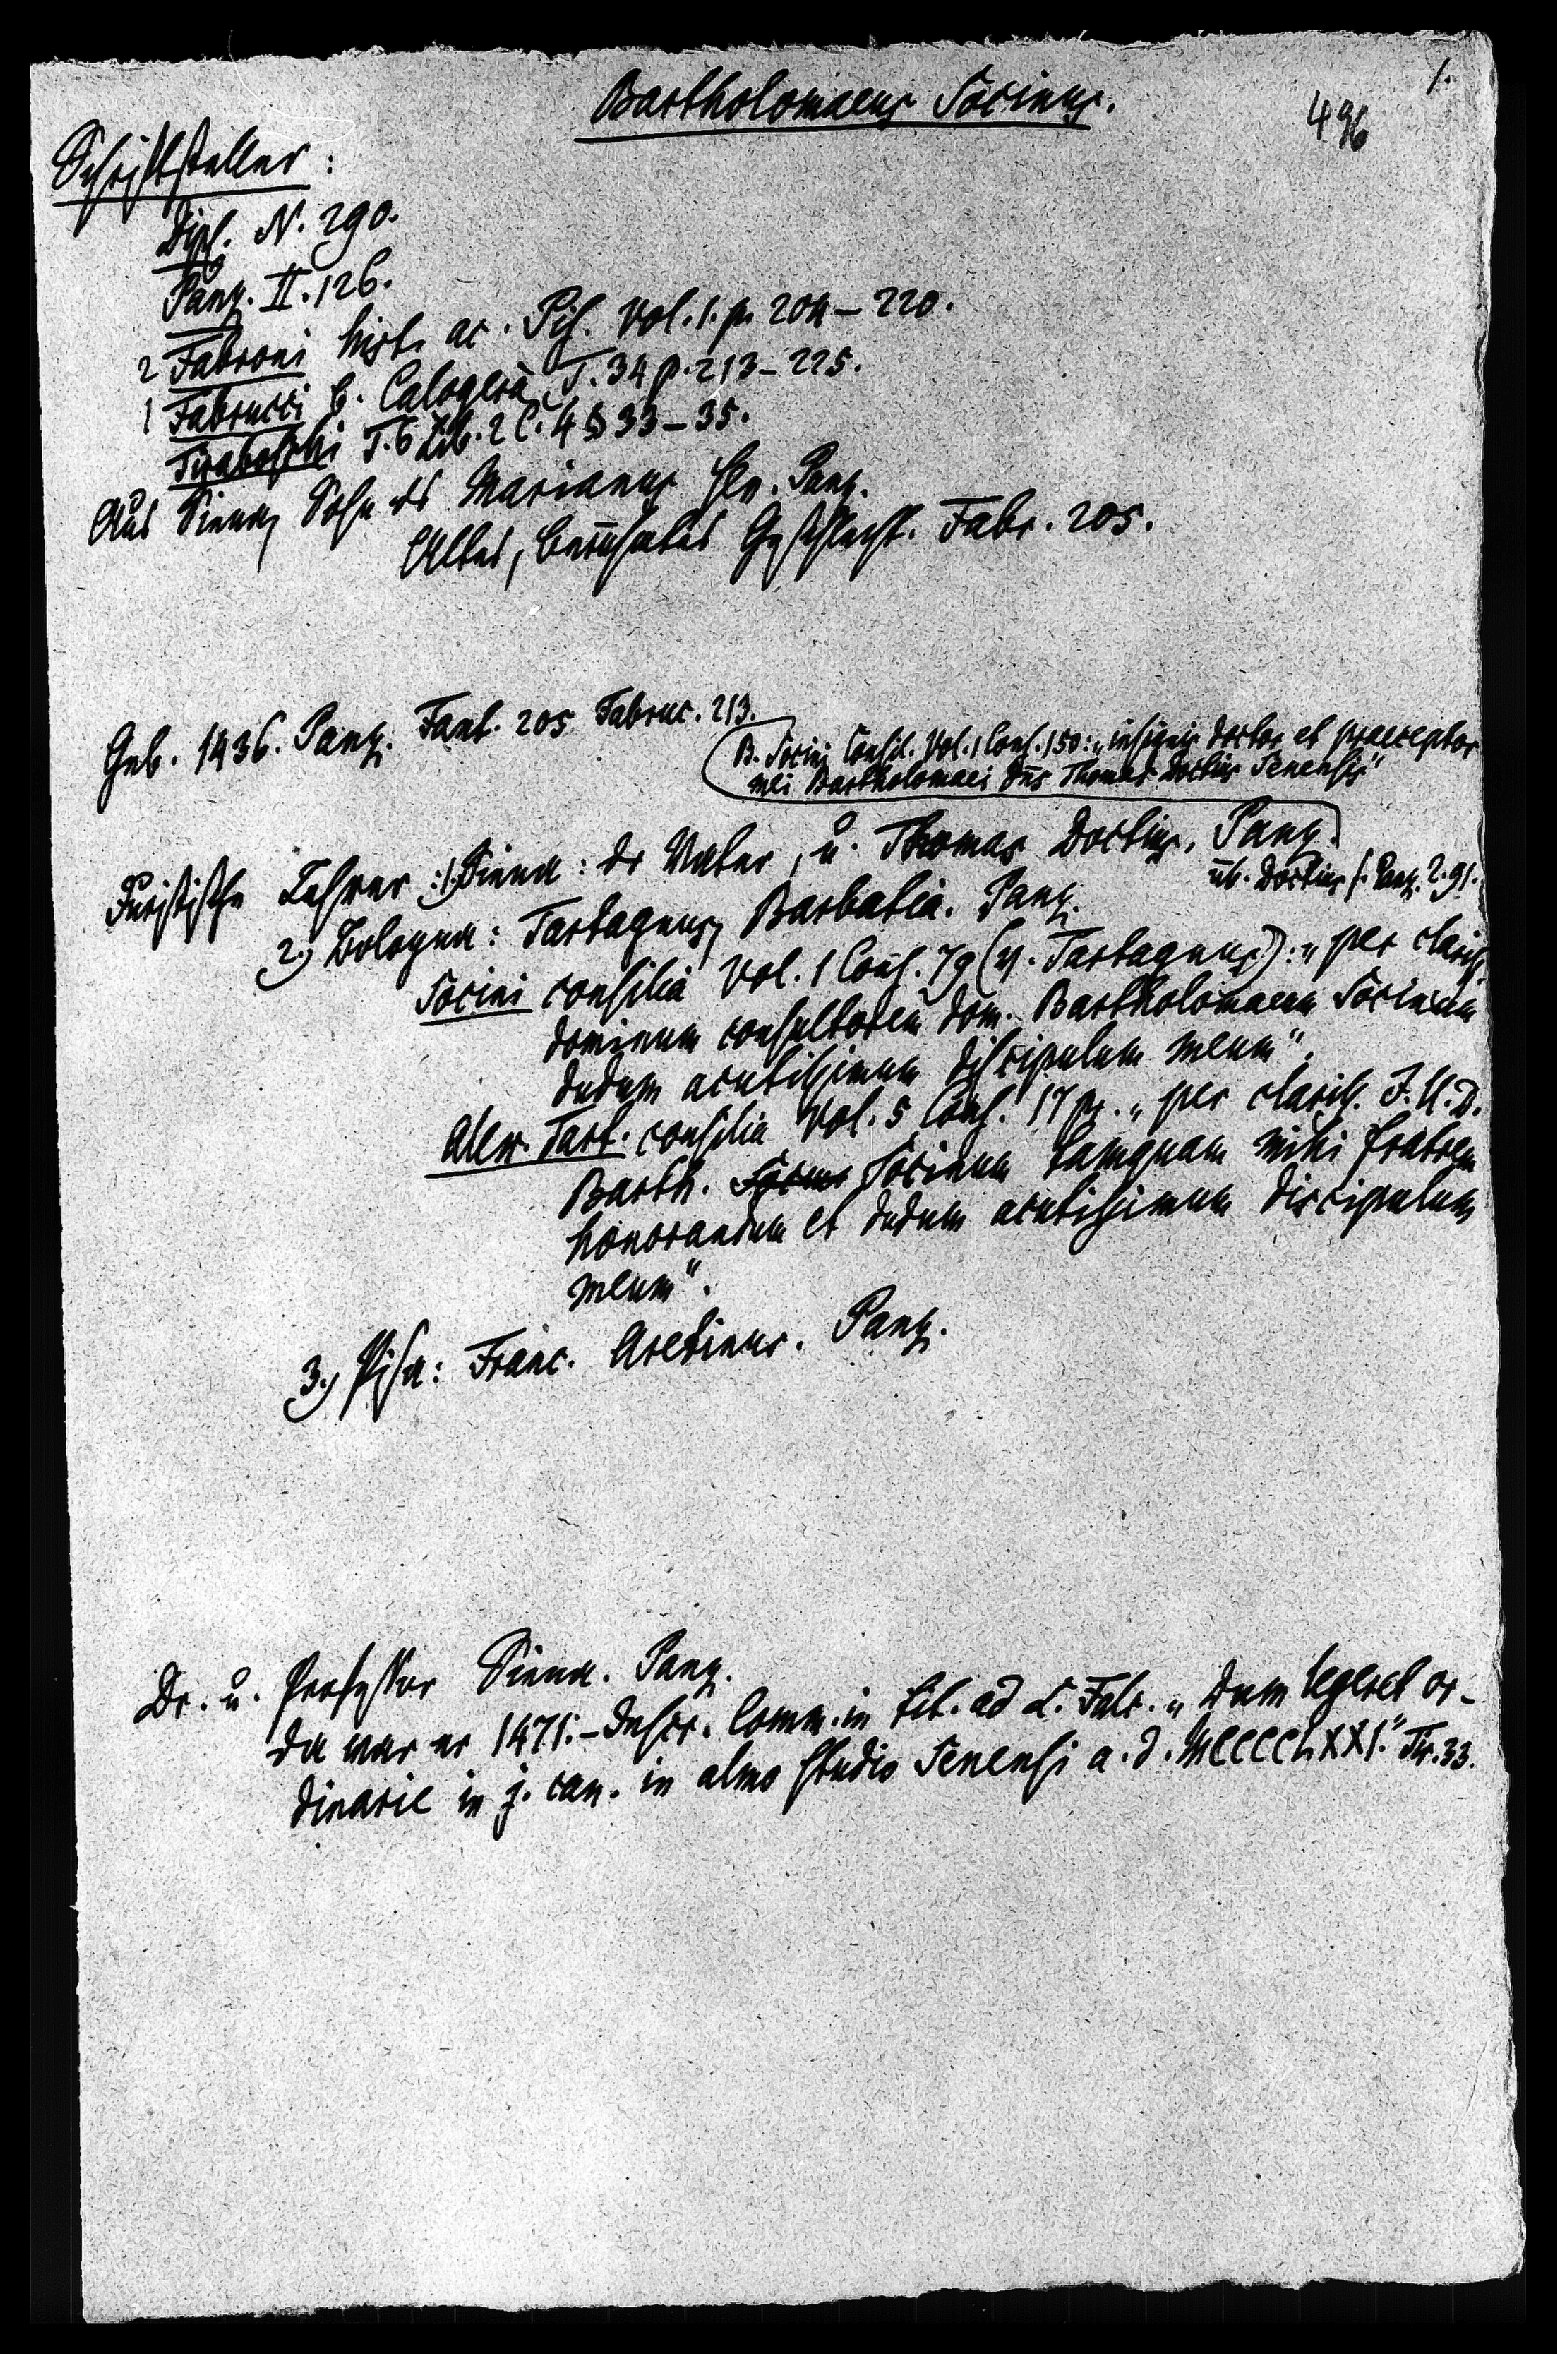 1.
Bartholomaeus Socinus.
496
Schriftsteller:
Dipl. N. 290.
Panz. II. 126.
2 Fabroni hist. ac. Pis. Vol. 1. p. 204–220.
1 Fabrucci b. Calogerà T. 34 p. 213–225.
Tiraboschi T. 6 Lib. 2 C. 4 § 33–35.
Aus Siena, Sohn des Marianus Sen. Panz.
Altes, berühmtes Geschlecht. Fabr. 205.
Geb. 1436. Panz. Fant. 205 Fabruc. 213.
B. Socini Consil. Vol. 1 Cons. 150: „insignis doctor et praeceptor
mei Bartholomaei dns Thomas Doctius Senensis"
Juristische Lehrer: 1) Siena: der Vater, u. Thomas Doctius. Panz.
üb. Doctius s. Panz. 2. 91.
2.) Bologna: Tartagnus, Barbatia. Panz.
Socini consilia Vol. 1 Cons. 79 (v. Tartagnus): „per clariss.
dominum consultorem dom. Bartholomaeum Socinum
dudum acutissimum discipulum meum".
Alex. Tart. consilia Vol. 5 Cons. 17 pr. „per clariss. J. U. D.
Barth. Socinum tamquam mihi fratrem
honorandum et dudum acutissimum discipulum
meum".
3.) Pisa: Franc. Aretinus. Panz.
Dr. u. Professor Siena. Panz.
da war er 1471.– Inscr. Comm. in tit. ad L. Falc. „Dum legeret or-
dinarie in j. can. in almo studio Senensi a. d. MCCCCLXXI." Tir. 33.